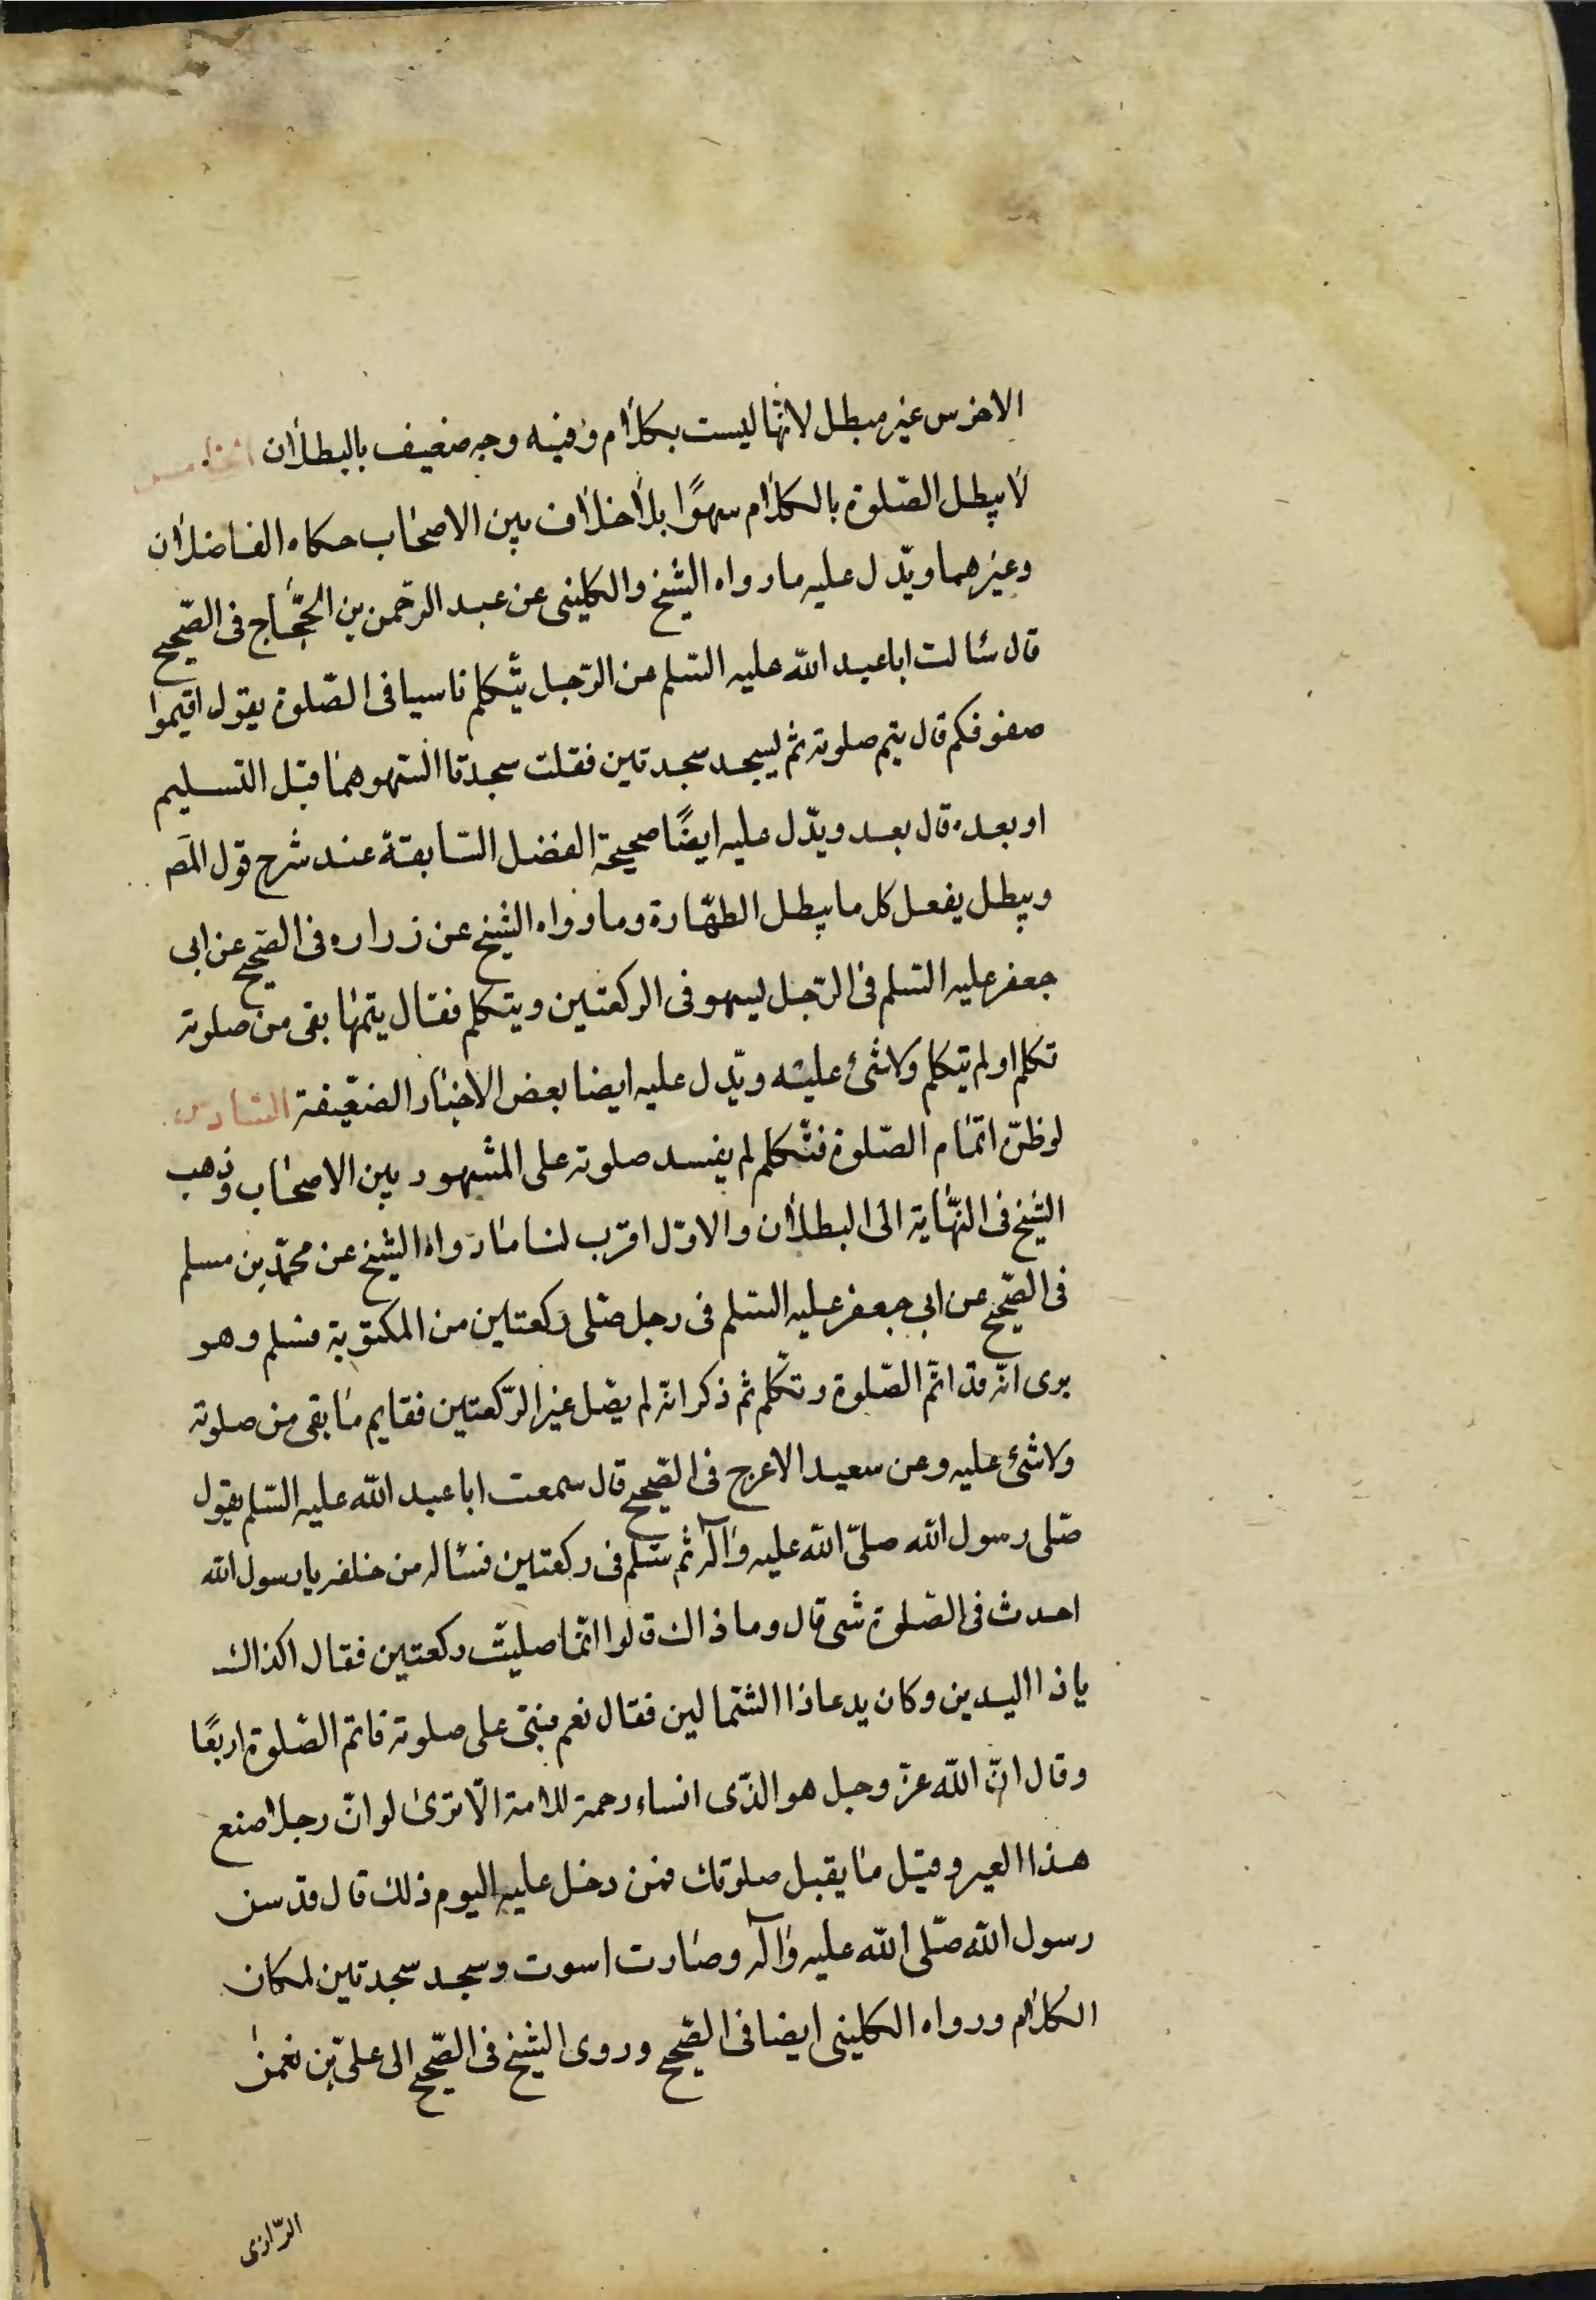 الاخرس غير مبطل لانها ليست بكلام وفيه وجه ضعيف بالبطلان الخامس
لا يبطل الصّلوة بالكلام سهوًا بلا خلاف بين الاصحاب حكاه الفاضلان
وغيرهما ويدّل عليه ما رواه الشيخ والكلينى عن عبد الرّحمن بن الحجّاج فى الصّحيح
قال سئالت ابا عبد الله عليه السّلم عن الرّجل يتكلم ناسيا فى الصّلوة يقول اقيموا
صفوفكم قال يتم صلوته ثم ليسجد سجدتين فقلت سجدتا السّهو هما قبل التسليم
او بعد قال بعد ويدّل عليه ايضًا صحيحة الفضل السّابقة عند شرح قول المص
ويبطل يفعل كل ما يبطل الطهّارة وما رواه الشيخ عن زراره فى الصّحيح عن ابى
جعفر عليه السّلم فى الرّجل ليسهو فى الركعتين ويتكلم فقال يتمها بقى من صلوته
تكلم او لم يتكلم ولا شئ عليه ويدّل عليه ايضا بعض الاخبار الضعّيفة السّادس
لو ظنّ اتمام الصّلوة فتكلم لم يفسد صلوته على المشهور بين الاصحاب وذهب
الشيخ فى النّهاية الى البطلان والاوّل اقرب لنا ما رواه الشيخ عن محمّد بن مسلم
فى الصّحيح عن ابى جعفر عليه السّلم فى رجل صّلى ركعتين من المكتوبة فسلم وهو
يرى انّه قد اتمّ الصّلوة وتكلّم ثم ذكر انّه لم يصّل غير الرّكعتين فقايم ما بقى من صلوته
ولا شئ عليه وعن سعيد الاعرج فى الصّحيح قال سمعت ابا عبد الله عليه السّلم يقول
صّلى رسول الله صلّى الله عليه وآله ثم سّلم فى ركعتين فسئاله من خلفه يا رسول الله
احدث فى الصّلوة شى قال وما ذاك قالوا انّما صليت ركعتين فقال اكذاك
يا ذا اليدين وكان يدعا ذا الشّمالين فقال نعم فبنى على صلوته فاتم الصّلوة اربعًا
وقال انّ الله عزّ وجل هو الذّى انساه رحمة للامة الّا ترى لو انّ رجلا صنع
هذا العير وقيل ما يقبل صلوتك فمن دخل عليه اليوم ذلك قال قد سن
رسول الله صّلى الله عليه وآله وصارت اسوت وسجد سجدتين لمكان
الكلام ورواه الكلينى ايضا فى الصّحيح وروى الشيخ فى الصّحيح الى علىّ بن نعمن
الرّازى